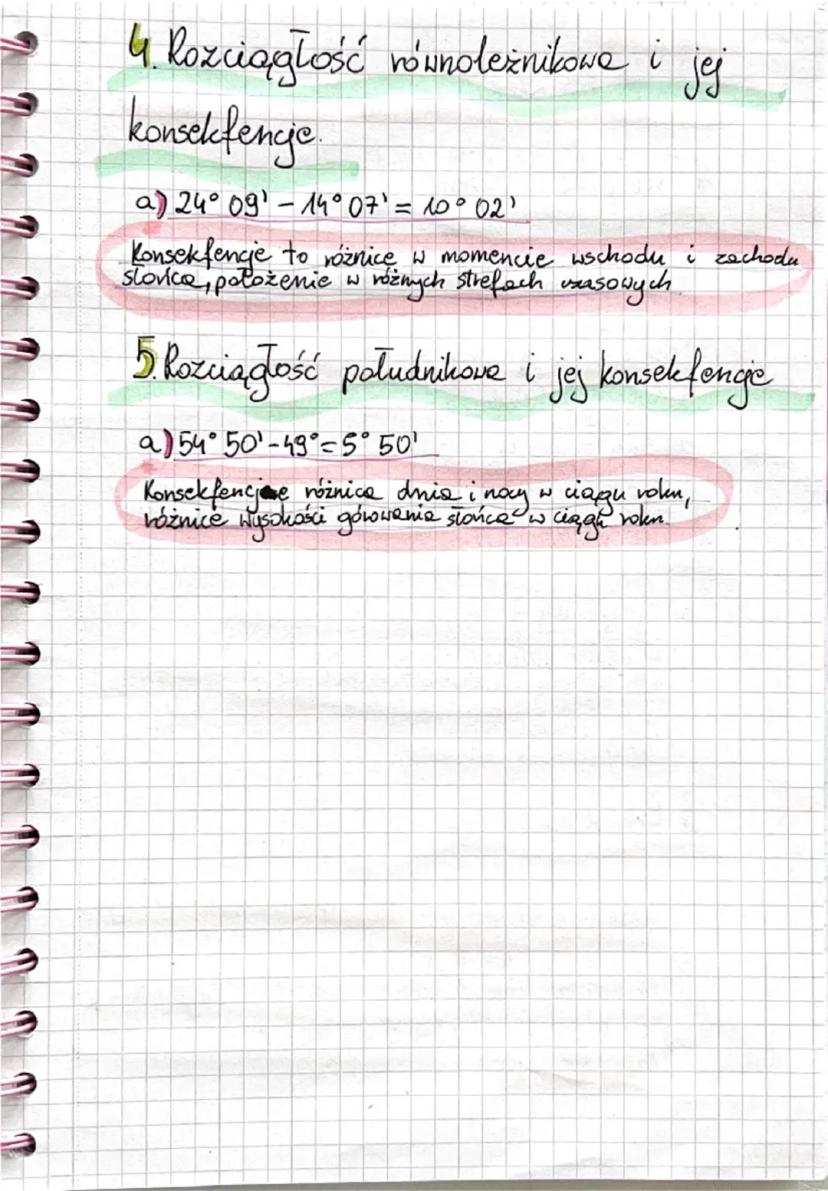 4. Rozciągłość równoleżnikowa i jej
konsekfencje.
a) 24° 09' - 14° 07' = 10° 02'
Konsekfencje to różnice w momencie wschodu i zachodu
słońca, położenie w różnych strefach czasowych
5. Rozciągłość południkowa i jej konsekfencje
a) 54° 50' - 49° = 5° 50'
Konsekfencje różnica dnia i nocy w ciągu roku,
różnice wysokości górowania słońca w ciągu roku.